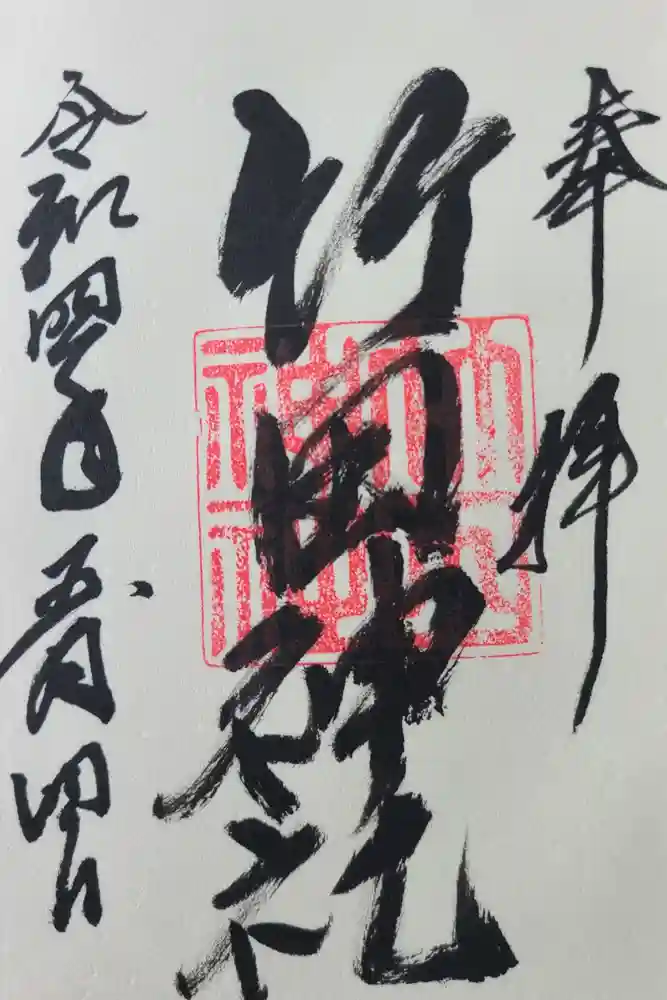 奉拝
竹田神社
令和四年五月四日